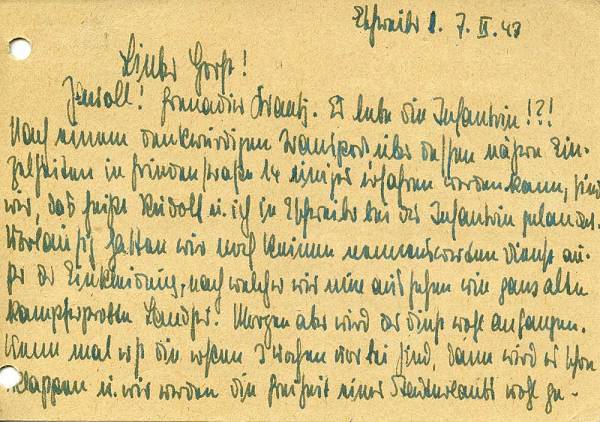 7. II. 43
Lieber Horst!
Jawoll! Grenadier Krantz. Es lebe die Infanterie!?!
Nach einem denkwürdigen Transport über dessen nähere Ein-
zelheiten in 14 einiges erfahren werden kann, sind
wir, das heißt Rudolf u. ich in bei der Infanterie gelandet.
Vorläufig hatten wir noch keinen nennenswerten Dienst au-
ßer der Einkleidung, nach welcher wir nun aussehen wie ganz alte
kampferprobte Landser. Morgen aber wird der Dienst wohl anfangen.
Wenn mal erst die ersten 3 Wochen vorbei sind, dann wird es schon
klappen u. wir werden die Freiheit eines wohl ge-